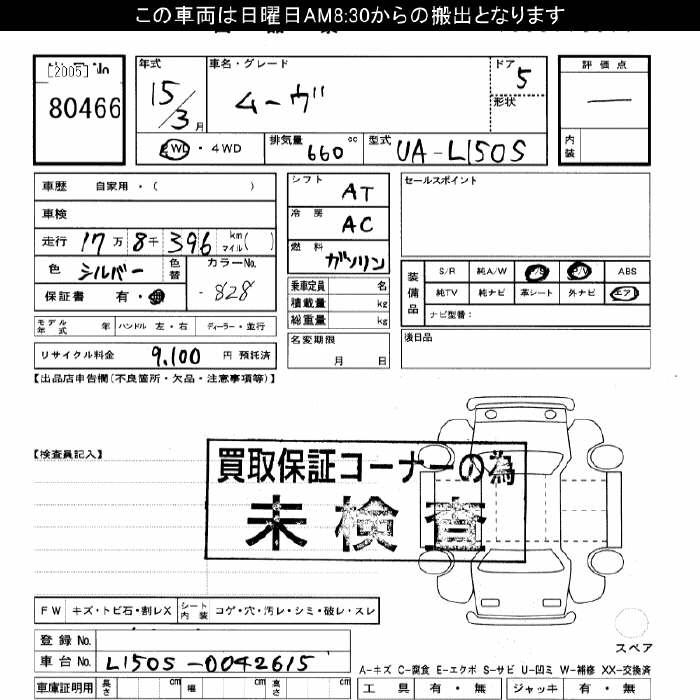 この車両は日曜日AM8:30からの搬出となります
[2005]
80466
年式
15/3月
車名・グレード
ムーヴ
ドア
5
形状
評価点
—
内装
2WD・4WD
排気量
660 cc
型式
UA-L150S
車歴 自家用・( )
車検
走行 17万 8千 396 km マイル( )
色 シルバー
色替
カラーNo.
-828
保証書 有・
モデル年式 年 ハンドル 左・右 ディーラー・並行
リサイクル料金 9,100 円 預託済
シフト AT
冷房 AC
燃料 ガソリン
乗車定員 名
積載量 kg
総重量 kg
名変期限
月 日
セールスポイント
装備品
S/R 純A/W P/S P/W ABS
純TV 純ナビ 革シート 外ナビ エアB
ナビ型番:
後日品
【出品店申告欄(不良箇所・欠品・注意事項等)】
【検査員記入】
買取保証コーナーの為
未検査
FW キズ・トビ石・割レX
シート内装 コゲ・穴・汚レ・シミ・破レ・スレ
登録No.
車台No. L150S-0042615
車庫証明用 長さ cm 幅 cm 高さ cm
スペア
A-キズ C-腐食 E-エクボ S-サビ U-凹ミ W-補修 XX-交換済
工具 有・無 ジャッキ 有・無